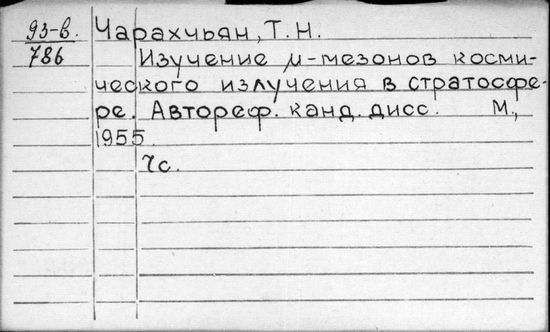 93-в. Чарахчьян, Т.Н.
786 Изучение μ-мезонов косми-
ческого излучения в стратосфе-
ре. Автореф. канд. дисс. М.,
1955.
7с.